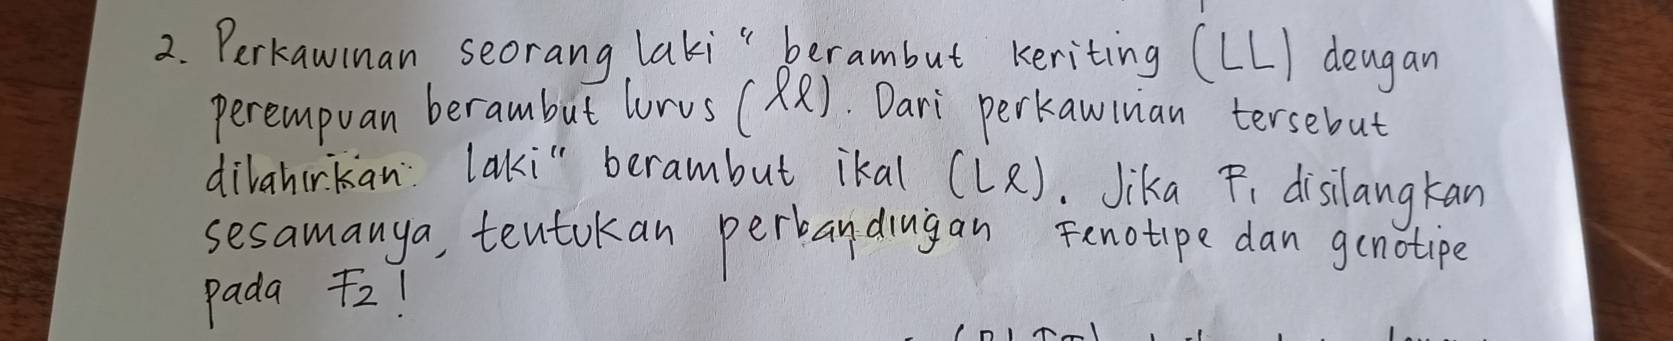 2. Perkawinan seorang laki" berambut keriting (LL) dengan
perempuan berambut lurus (ll). Dari perkawinan tersebut
dilahirkan laki" berambut ikal (Ll). Jika F1 disilangkan
sesamanya, tentukan perbandingan Fenotipe dan genotipe
pada F2!